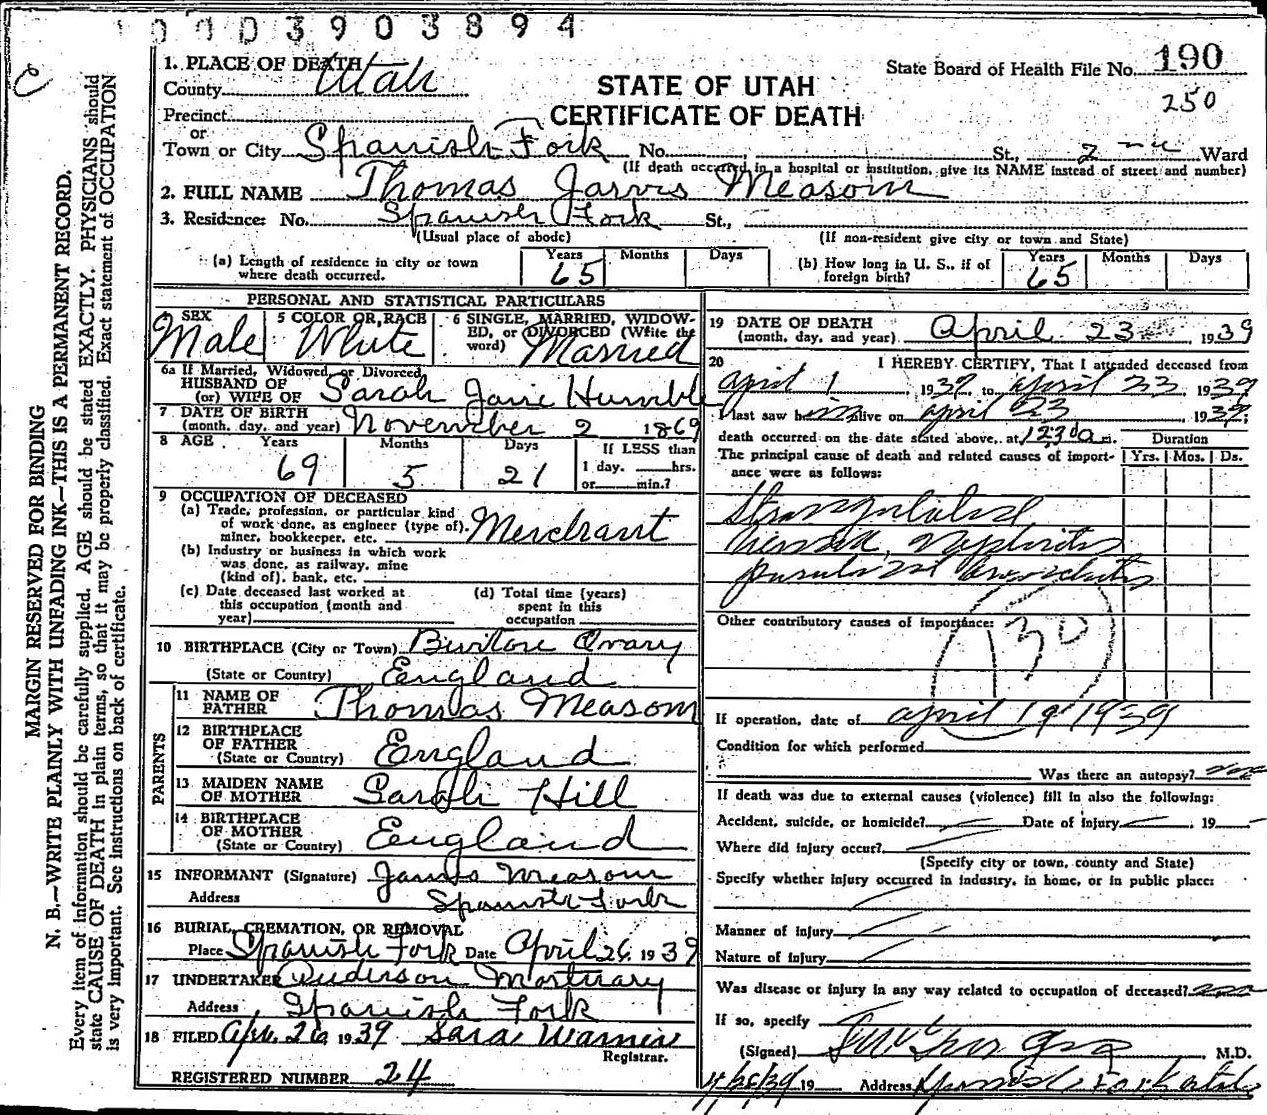 0003903894
1. PLACE OF DEATH
County Utah
STATE OF UTAH
CERTIFICATE OF DEATH
State Board of Health File No. 190
250
Precinct
or
Town or City Spanish Fork No. St., 2 Ward
(If death occurred in a hospital or institution, give its NAME instead of street and number)
2. FULL NAME Thomas Jarvis Measom
3. Residence: No. Spanish Fork St.,
(Usual place of abode) (If non-resident give city or town and State)
(a) Length of residence in city or town where death occurred. Years 65 Months Days
(b) How long in U. S., if of foreign birth? Years 65 Months Days
PERSONAL AND STATISTICAL PARTICULARS
4 SEX Male
5 COLOR OR RACE White
6 SINGLE, MARRIED, WIDOWED, or DIVORCED (Write the word) Married
6a If Married, Widowed, or Divorced
HUSBAND OF
(or) WIFE OF Sarah Jane Humble
7 DATE OF BIRTH
(month, day, and year) November 2 1869
8 AGE Years 69 Months 5 Days 21 If LESS than 1 day. hrs. or min.?
9 OCCUPATION OF DECEASED
(a) Trade, profession, or particular kind of work done, as engineer (type of), miner, bookkeeper, etc. Merchant
(b) Industry or business in which work was done, as railway, mine (kind of), bank, etc.
(c) Date deceased last worked at this occupation (month and year)
(d) Total time (years) spent in this occupation
10 BIRTHPLACE (City or Town) Burton
(State or Country) England
PARENTS
11 NAME OF FATHER Thomas Measom
12 BIRTHPLACE OF FATHER
(State or Country) England
13 MAIDEN NAME OF MOTHER Sarah Hill
14 BIRTHPLACE OF MOTHER
(State or Country) England
15 INFORMANT (Signature) James Measom
Address Spanish Fork
16 BURIAL, CREMATION, OR REMOVAL
Place Spanish Fork Date April 26, 1939
17 UNDERTAKER Anderson Mortuary
Address Spanish Fork
18 FILED Apr. 26 1939 Sara Warner
Registrar.
REGISTERED NUMBER 24
19 DATE OF DEATH
(month, day, and year) April 23 1939
20 I HEREBY CERTIFY, That I attended deceased from
April 1 1939, to April 23 1939
I last saw him alive on April 23 1939,
death occurred on the date stated above, at 1230a m.
Duration
The principal cause of death and related causes of importance were as follows: Yrs. Mos. Ds.
Strangulated
Hernia, Nephritis
Other contributory causes of importance:
130
If operation, date of April 19 1939
Condition for which performed
Was there an autopsy? no
If death was due to external causes (violence) fill in also the following:
Accident, suicide, or homicide? Date of injury , 19
Where did injury occur?
(Specify city or town, county and State)
Specify whether injury occurred in industry, in home, or in public place:
Manner of injury
Nature of injury
Was disease or injury in any way related to occupation of deceased? no
If so, specify
(Signed) M.D.
4/26/39 19 Address Spanish Fork Utah
MARGIN RESERVED FOR BINDING
N. B.—WRITE PLAINLY WITH UNFADING INK—THIS IS A PERMANENT RECORD.
Every item of information should be carefully supplied. AGE should be stated EXACTLY. PHYSICIANS should
state CAUSE OF DEATH in plain terms, so that it may be properly classified. Exact statement of OCCUPATION
is very important. See instructions on back of certificate.